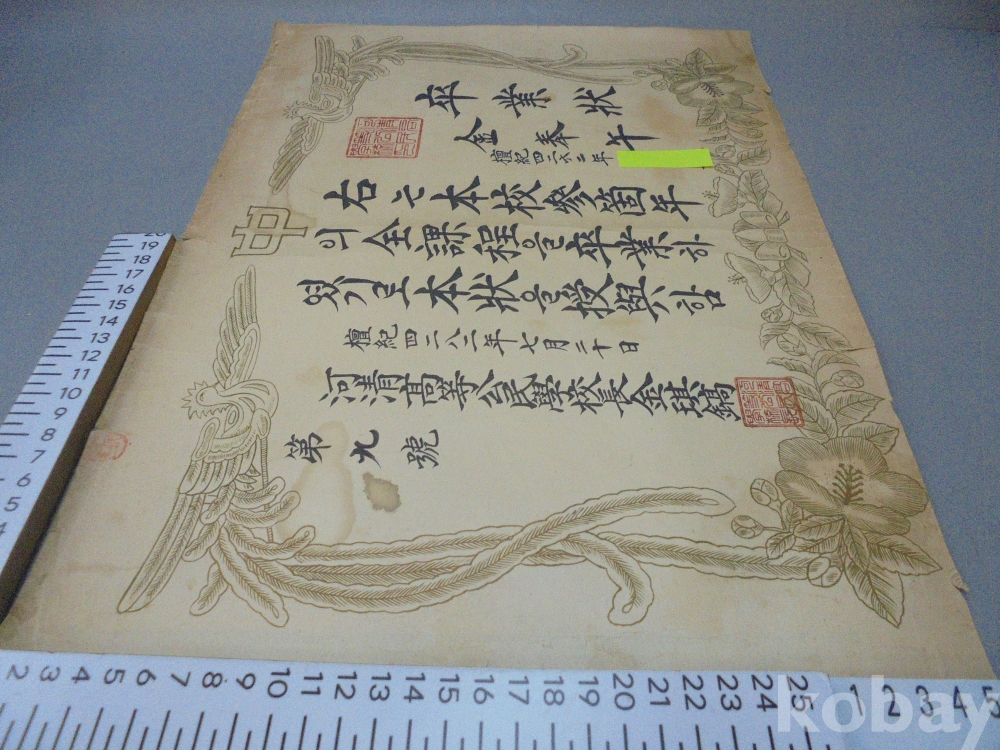 卒業狀
金奉午
檀紀四二六二年
右는本校參箇年
의全課程을卒業하
였기로本狀을授與함
中
檀紀四二八二年七月二十日
河淸高等公民學校長金琪鎬
第九號
20 19 18 17 16 15 14 13 12 11 10 9 8 7 6 5 4
2 3 4 5 6 7 8 9 10 11 12 13 14 15 16 17 18 19 20 21 22 23 24 25 1 2 3 4 5
kobay